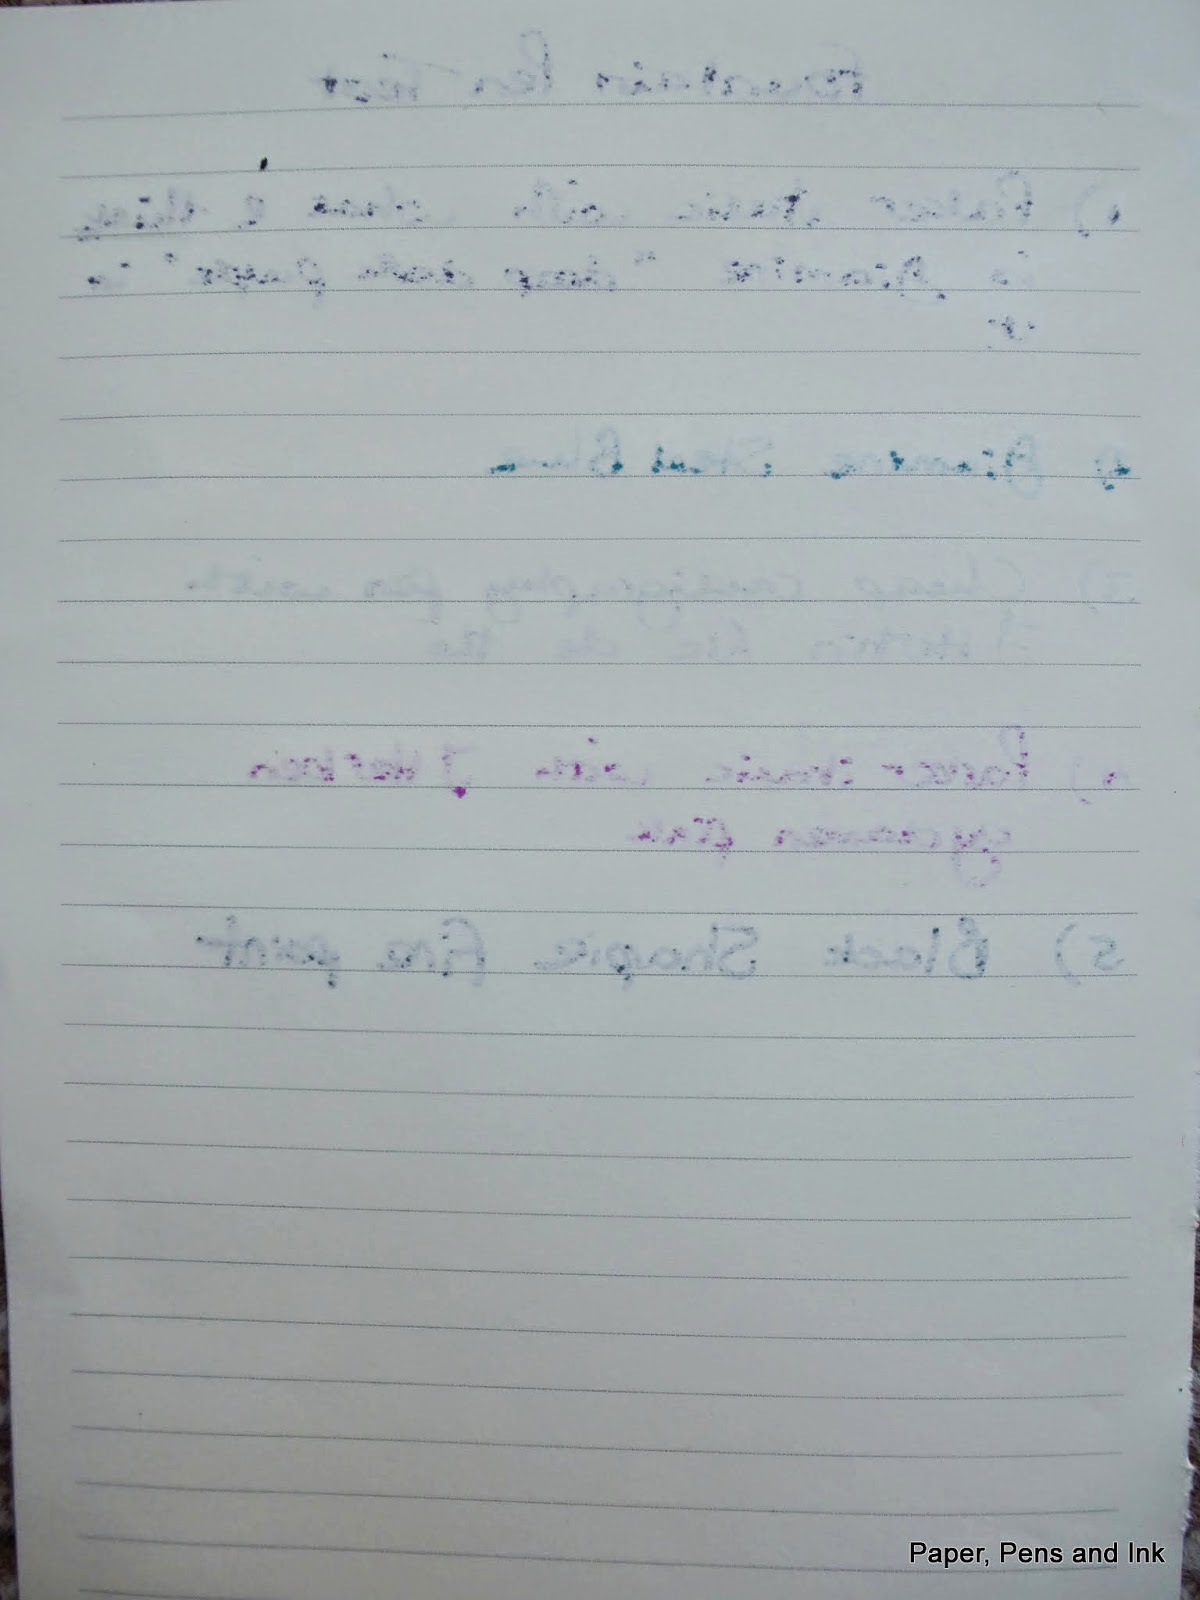 Fountain Pen Test
1) Parker Italic with what I think
is Diamine "deep dark purple" in
it
2) Diamine Steel Blue
3) Cheap calligraphy pen with
J Herbin
4) Parker Italic with J Herbin
cyclamen pink
5) Black Sharpie fine point
Paper, Pens and Ink